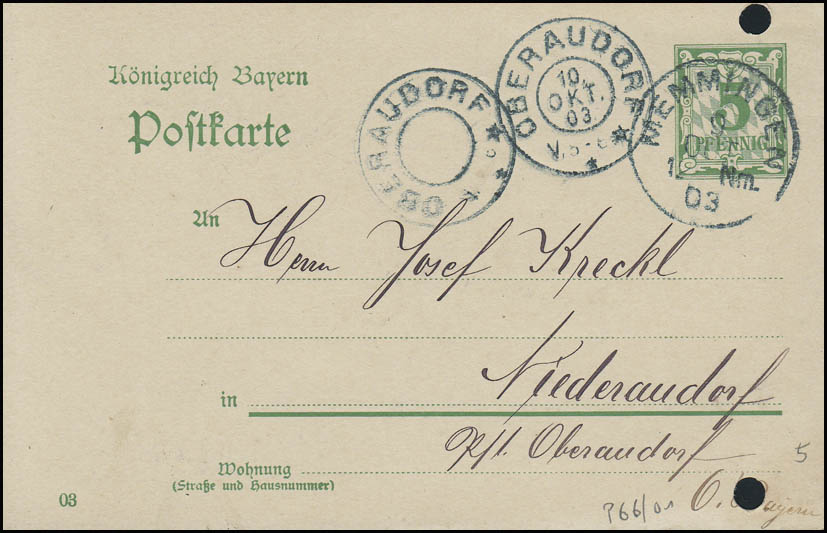 Königreich Bayern
Postkarte
OBERAUDORF
OBERAUDORF
10.
OKT.
03
MEMMINGEN
9
Nm.
03
5
PFENNIG
An
Herrn Josef Kreckl
in Niederaudorf
Pst. Oberaudorf
Wohnung
(Straße und Hausnummer)
O. Bayern
03
5
P66/01